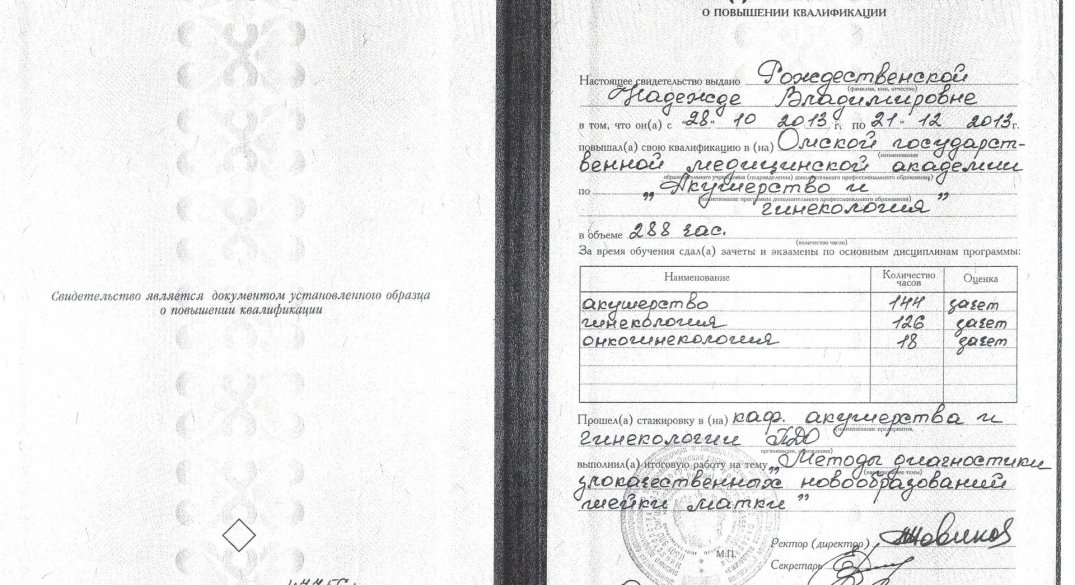 Свидетельство является документом установленного образца
о повышении квалификации
О ПОВЫШЕНИИ КВАЛИФИКАЦИИ
Настоящее свидетельство выдано Рождественской
(фамилия, имя, отчество)
Надежде Владимировне
в том, что он(а) с 28. 10 2013 г. по 21. 12 2013 г.
повышал(а) свою квалификацию в (на) Омской государст-
(наименование
венной медицинской академии
образовательного учреждения (подразделения) дополнительного профессионального образования)
по „Акушерство и
(наименование программы дополнительного профессионального образования)
гинекология”
в объеме 288 час.
(количество часов)
За время обучения сдал(а) зачеты и экзамены по основным дисциплинам программы:
Наименование Количество часов Оценка
акушерство 144 зачет
гинекология 126 зачет
онкогинекология 18 зачет
Прошел(а) стажировку в (на) каф. акушерства и
(наименование предприятия,
гинекологии ПДО
организации, учреждения)
выполнил(а) итоговую работу на тему „Методы диагностики
(наименование темы)
злокачественных новообразований
шейки матки”
М.П.
Ректор (директор)
Секретарь